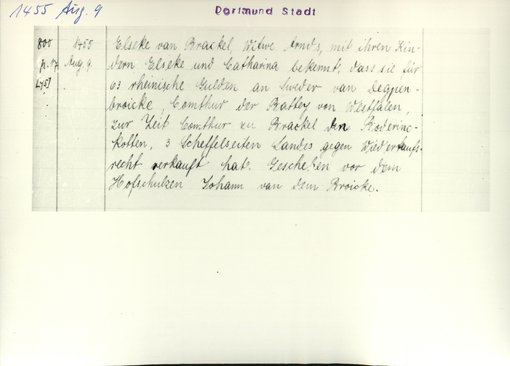 1455 Aug. 9
Dortmund Stadt
800 1455 Elseke van Brackel, Witwe Arnds, mit ihren Kin-
Aug. 9. dern Elseke und Catharina bekennt, dass sie für
63 rheinische Gulden an Sweder van
broicke, Comthur der Balley von Westfalen,
zur Zeit Comthur zu Brackel den Roderinc-
kotten, 3 Scheffelseiten Landes gegen Wiederkaufs-
recht verkauft hat. Geschehen vor dem
Hofschulzen Johann van dem Broicke.